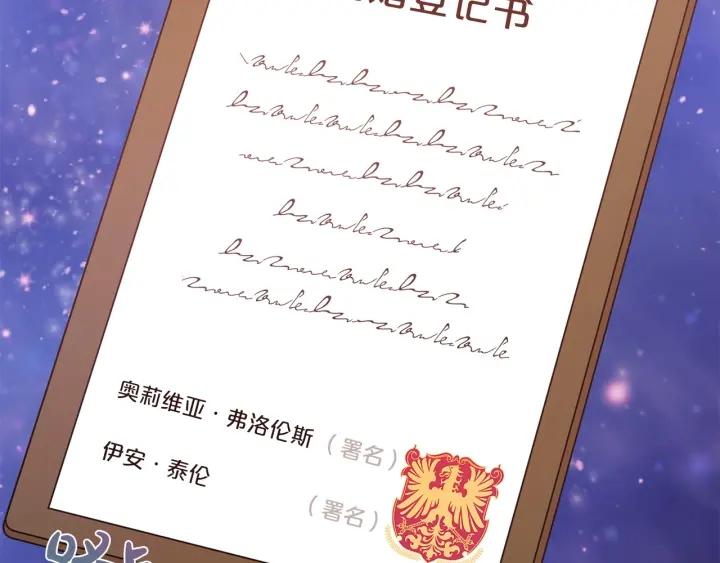 登记书
奥莉维亚·弗洛伦斯（署名）
伊安·泰伦
（署名）